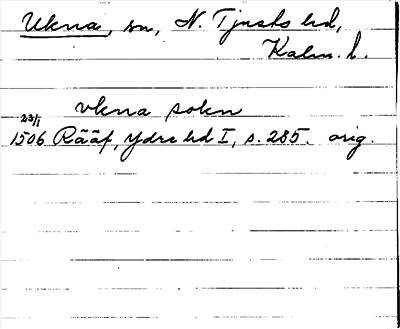 Ukna, sn, N. Tjusts hd,
Kalm. l.
vkna sokn
23/1
1506 Rääf, Ydre hd I, s. 285. orig.